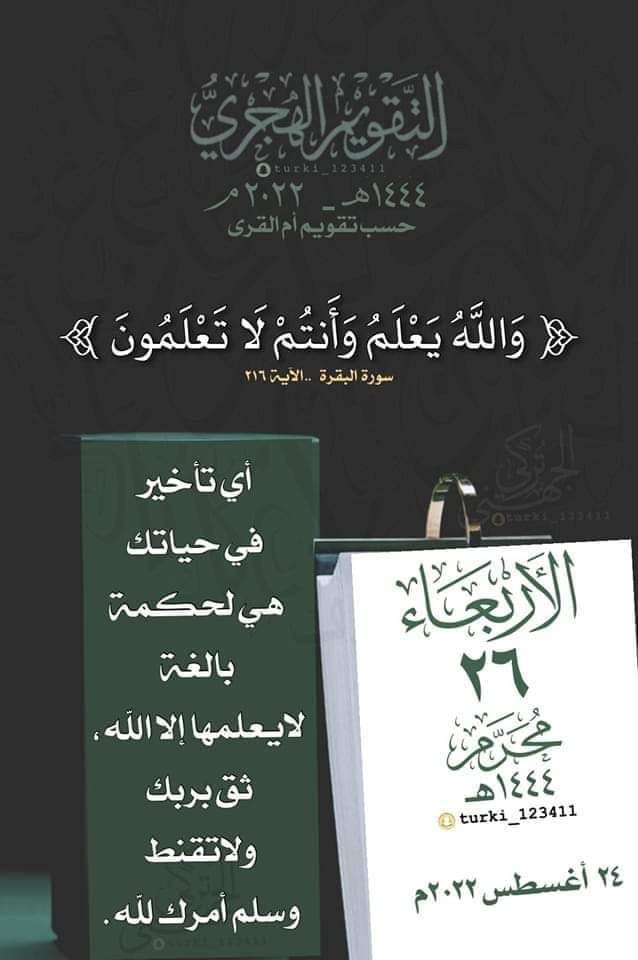 التَّقويم الهجريُّ
turki_123411
١٤٤٤هـ _ ٢٠٢٢ م
حسب تقويم أم القرى
﴿ وَاللَّهُ يَعْلَمُ وَأَنتُمْ لَا تَعْلَمُونَ ﴾
سورة البقرة ..الآية ٢١٦
turki_123411
أي تأخير
في حياتك
هي لحكمة
بالغة
لايعلمها إلا الله،
ثق بربك
ولاتقنط
وسلم أمرك لله.
الأَرْبعَاء
٢٦
مُحَرَّم
١٤٤٤هـ
turki_123411
٢٤ أغسطس ٢٠٢٢م